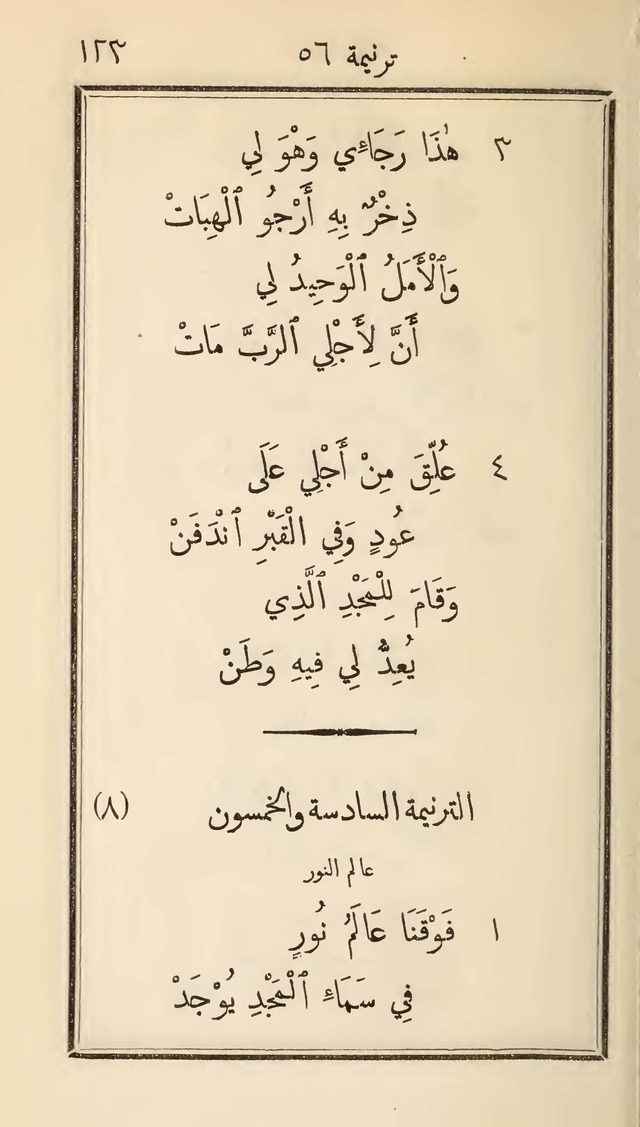 ترنيمة ٥٦ ١٢٣
٣ هٰذَا رَجَاءِي وَهْوَ لِي
ذِخْرٌ بِهِ أَرْجُو ٱلْهِبَاتْ
وَٱلْأَمَلُ ٱلْوَحِيدُ لِي
أَنَّ لِأَجْلِي ٱلرَّبَّ مَاتْ
٤ عُلِّقَ مِنْ أَجْلِي عَلَى
عُودٍ وَفِي الْقَبْرِ ٱنْدَفَنْ
وَقَامَ لِلْمَجْدِ ٱلَّذِي
يُعِدُّ لِي فِيهِ وَطَنْ
الترنيمة السادسة والخمسون (٨)
عالم النور
١ فَوْقَنَا عَالَمُ نُورٍ
فِي سَمَاءِ ٱلْمَجْدِ يُوْجَدْ